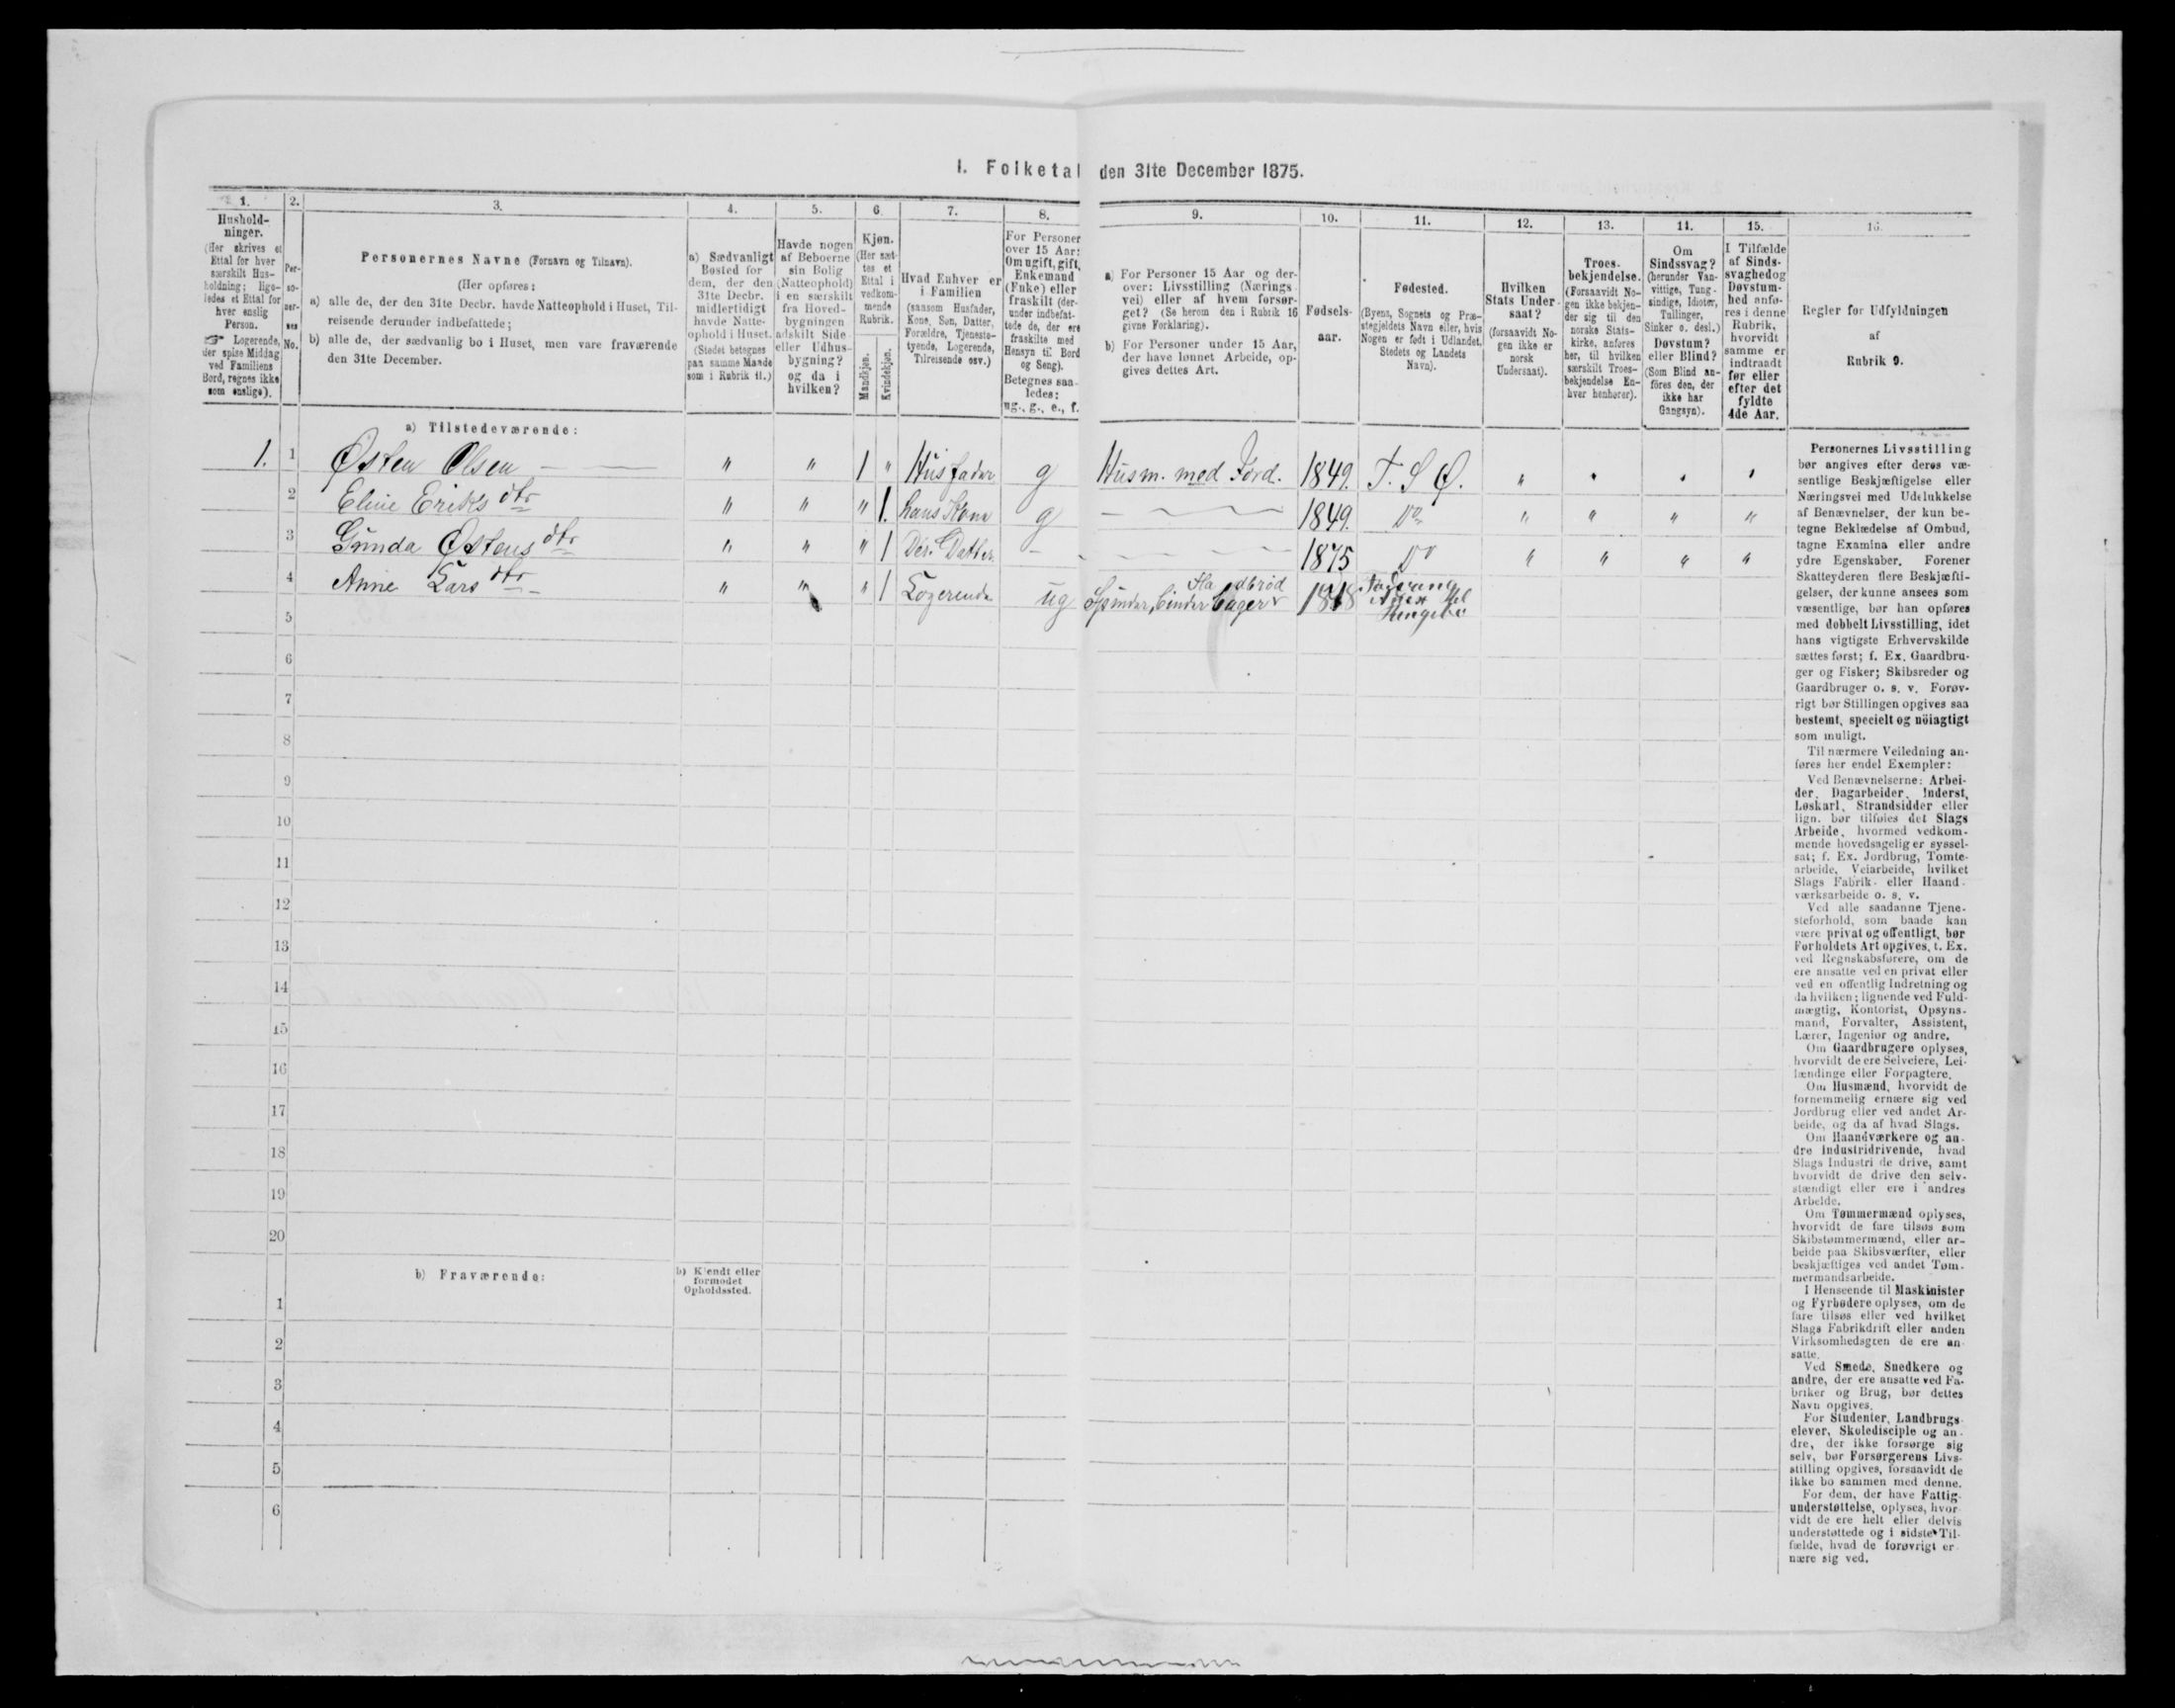 I. Folketal den 31te December 1875.
1. 2. 3. 4. 5. 6. 7. 8. 9. 10. 11. 12. 13. 14. 15. 16.
Hushold-
ninger.
(Her skrives et
Ettal for hver
særskilt Hus-
holdning; lige-
ledes et Ettal for
hver enslig
Person.
☞ Logerende,
der spise Middag
ved Familiens
Bord, regnes ikke
som enslige).
Per-
so-
ner-
nes
No.
Personernes Navne (Fornavn og Tilnavn).
(Her opføres:
a) alle de, der den 31te Decbr. havde Natteophold i Huset, Til-
reisende derunder indbefattede;
b) alle de, der sædvanlig bo i Huset, men vare fraværende
den 31te December.
a) Sædvanligt
Bosted for
dem, der den
31te Decbr.
midlertidigt
havde Natte-
ophold i Huset.
(Stedet betegnes
paa samme Maade
som i Rubrik 11.)
Havde nogen
af Beboerne
sin Bolig
(Natteophold)
i en særskilt
fra Hoved-
bygningen
adskilt Side-
eller Udhus-
bygning?
og da i
hvilken?
Kjøn.
(Her sæt-
tes et
Ettal i
vedkom-
mende
Rubrik.
Mandkjøn.
Kvindekjøn.
Hvad Enhver er
i Familien
(saasom Husfader,
Kone, Søn, Datter,
Forældre, Tjeneste-
tyende, Logerende,
Tilreisende osv.)
For Personer
over 15 Aar:
Om ugift, gift,
Enkemand
(Enke) eller
fraskilt (der-
under indbefat-
tede de, der ere
fraskilte med
Hensyn til Bord
og Seng).
Betegnes saa-
ledes:
ug., g., e., f.
a) For Personer 15 Aar og der-
over: Livsstilling (Nærings-
vei) eller af hvem forsør-
get? (Se herom den i Rubrik 16
givne Forklaring).
b) For Personer under 15 Aar,
der have lønnet Arbeide, op-
gives dettes Art.
Fødsels-
aar.
Fødested.
(Byens, Sognets og Præ-
stegjeldets Navn eller, hvis
Nogen er født i Udlandet,
Stedets og Landets
Navn).
Hvilken
Stats Under-
saat?
(forsaavidt No-
gen ikke er
norsk
Undersaat).
Troes-
bekjendelse.
(Forsaavidt No-
gen ikke bekjen-
der sig til den
norske Stats-
kirke, anføres
her, til hvilken
særskilt Troes-
bekjendelse En-
hver henhører).
Om
Sindssvag?
(herunder Van-
vittige, Tung-
sindige, Idioter,
Tullinger,
Sinker o. desl.)
Døvstum?
eller Blind?
(Som Blind an-
føres den, der
ikke har
Gangsyn).
I Tilfælde
af Sinds-
svaghed og
Døvstum-
hed anfø-
res i denne
Rubrik,
hvorvidt
samme er
indtraadt
før eller
efter det
fyldte
4de Aar.
Regler for Udfyldningen
af
Rubrik 9.
a) Tilstedeværende:
1. 1 Østen Olsen — — " " 1 " Husfader g Husm. med Jord. 1849. T. S Ø. " " " "
2 Eline Eriks dtr " " " 1. hans Kone g — — — 1849. Do " " " "
3 Gunda Østens dtr " " " 1 Der. Datter - - - - 1875 Do " " " "
4 Anne Lars dtr - " " " 1 Logerende ug Spinder, binder Fladbrød bager 1818
5
6
7
8
9
10
11
12
13
14
15
16
17
18
19
20
b) Fraværende:
b) Kjendt eller
formodet
Opholdssted.
1
2
3
4
5
6
Personernes Livsstilling
bør angives efter deres væ-
sentlige Beskjæftigelse eller
Næringsvei med Udelukkelse
af Benævnelser, der kun be-
tegne Beklædelse af Ombud,
tagne Examina eller andre
ydre Egenskaber. Forener
Skatteyderen flere Beskjæfti-
gelser, der kunne ansees som
væsentlige, bør han opføres
med dobbelt Livsstilling, idet
hans vigtigste Erhvervskilde
sættes først; f. Ex. Gaardbru-
ger og Fisker; Skibsreder og
Gaardbruger o. s. v. Forøv-
rigt bør Stillingen opgives saa
bestemt, specielt og nöiagtigt
som muligt.
Til nærmere Veiledning an-
føres her endel Exempler:
Ved Benævnelserne: Arbei-
der, Dagarbeider, Inderst,
Løskarl, Strandsidder eller
lign. bør tilføies det Slags
Arbeide, hvormed vedkom-
mende hovedsagelig er syssel-
sat; f. Ex. Jordbrug, Tomte-
arbeide, Veiarbeide, hvilket
Slags Fabrik- eller Haand-
værksarbeide o. s. v.
Ved alle saadanne Tjene-
steforhold, som baade kan
være privat og offentligt, bør
Forholdets Art opgives, t. Ex.
ved Regnskabsførere, om de
ere ansatte ved en privat eller
ved en offentlig Indretning og
da hvilken; lignende ved Fuld-
mægtig, Kontorist, Opsyns-
mand, Forvalter, Assistent,
Lærer, Ingeniør og andre.
Om Gaardbrugere oplyses,
hvorvidt de ere Selveiere, Lei-
lændinge eller Forpagtere.
Om Husmænd, hvorvidt de
fornemmelig ernære sig ved
Jordbrug eller ved andet Ar-
beide, og da af hvad Slags.
Om Haandværkere og an-
dre Industridrivende, hvad
Slags Industri de drive, samt
hvorvidt de drive den selv-
stændigt eller ere i andres
Arbeide.
Om Tømmermænd oplyses,
hvorvidt de fare tilsøs som
Skibstømmermænd, eller ar-
beide paa Skibsværfter, eller
beskjæftiges ved andet Tøm-
mermandsarbeide.
I Henseende til Maskinister
og Fyrbødere oplyses, om de
fare tilsøs eller ved hvilket
Slags Fabrikdrift eller anden
Virksomhedsgren de ere an-
satte.
Ved Smede, Snedkere og
andre, der ere ansatte ved Fa-
briker og Brug, bør dettes
Navn opgives.
For Studenter, Landbrugs-
elever, Skoledisciple og an-
dre, der ikke forsørge sig
selv, bør Forsørgerens Livs-
stilling opgives, forsaavidt de
ikke bo sammen med denne.
For dem, der have Fattig-
understøttelse, oplyses, hvor-
vidt de ere helt eller delvis
understøttede og i sidste Til-
fælde, hvad de forøvrigt er-
nære sig ved.